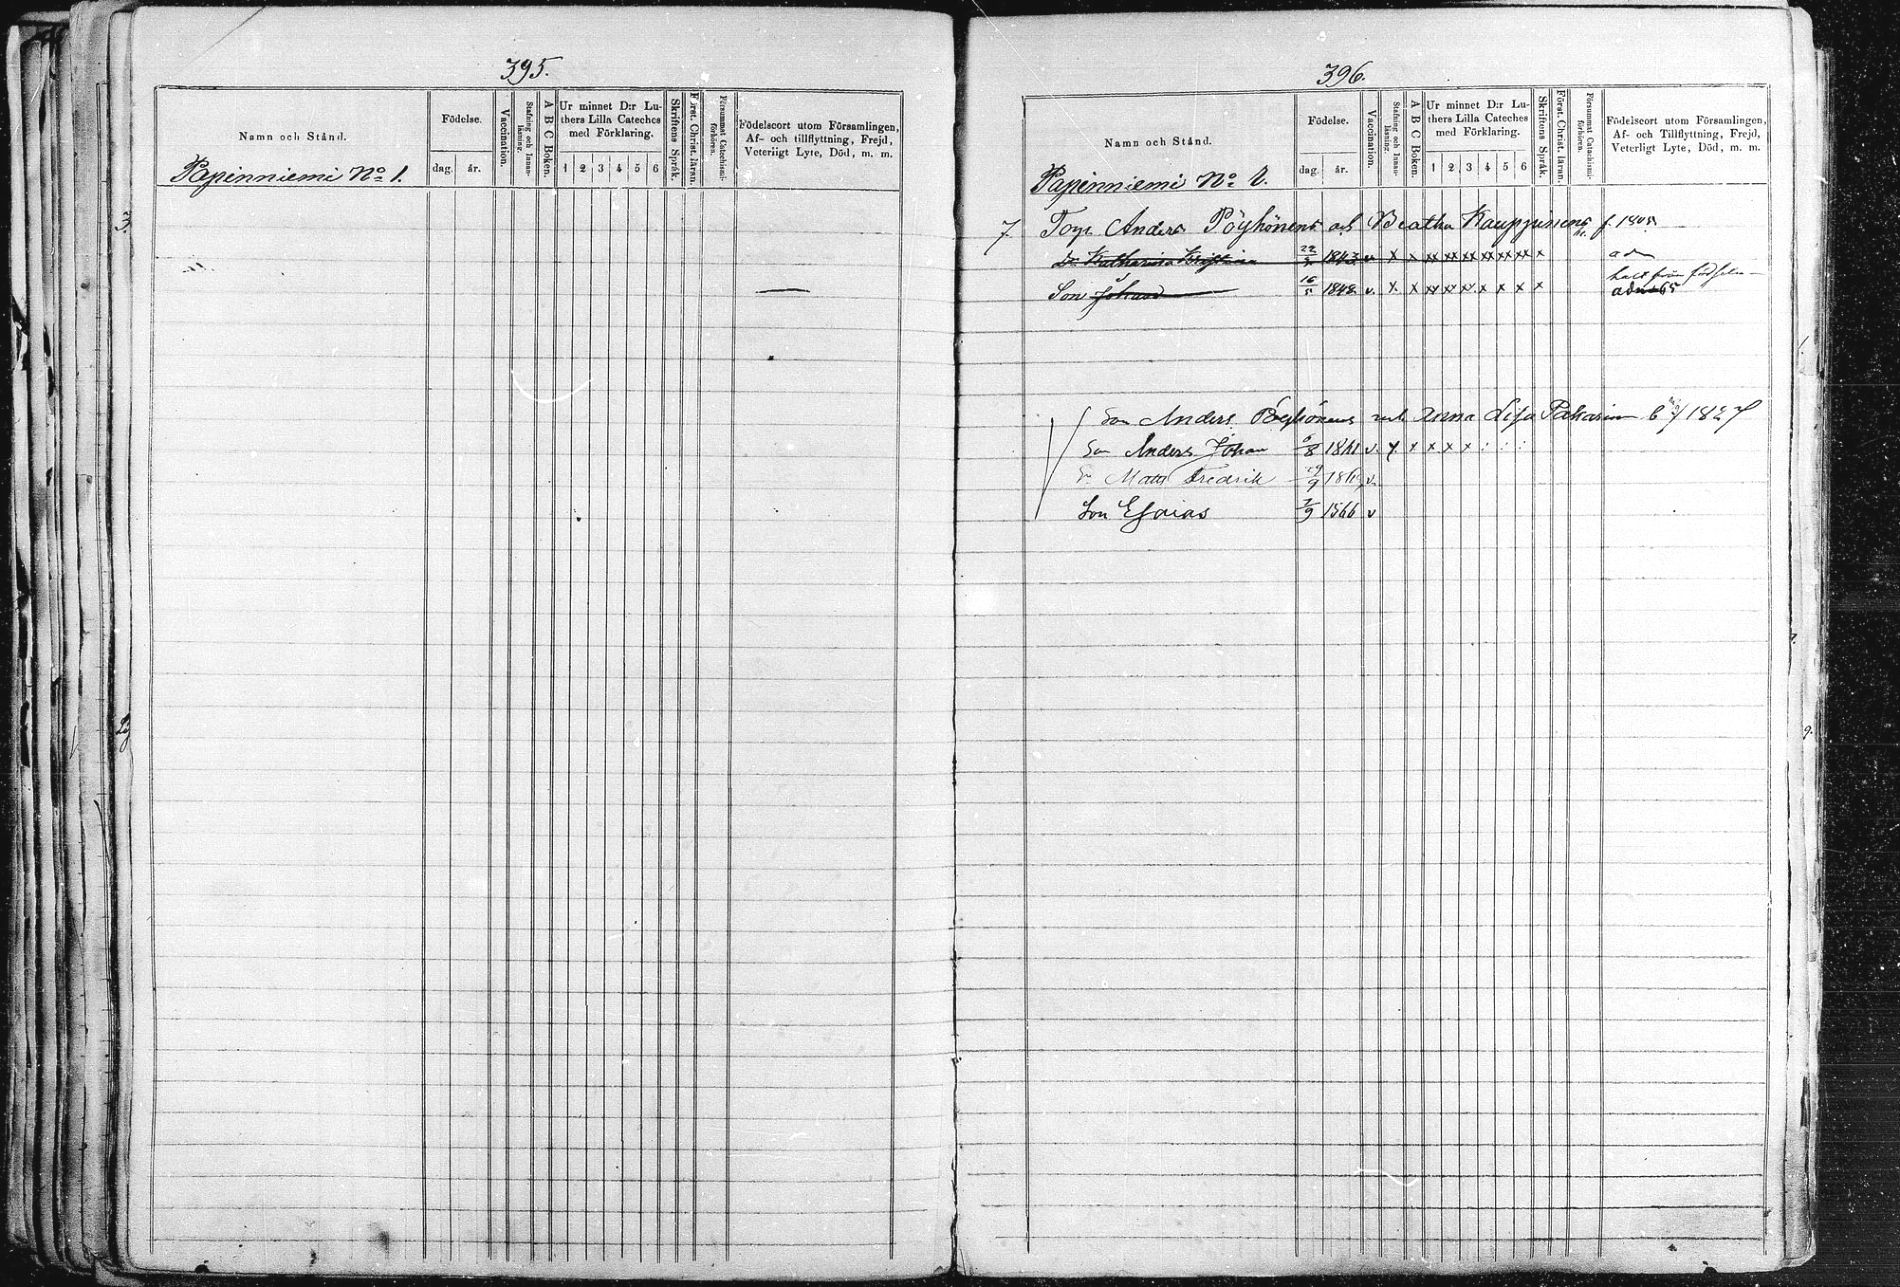 395.
Namn och Stånd.
Födelse.
dag. år.
Vaccination.
Stafning och Innanläsning.
A B C Boken.
Ur minnet D:r Luthers Lilla Cateches med Förklaring.
1 2 3 4 5 6
Skriftens Språk.
Först. Christ. läran.
Försummat Catechismiförhören.
Födelseort utom Församlingen,
Af- och tillflyttning, Frejd,
Veterligt Lyte, Död, m. m.
Papinniemi No 1.
3.
396.
Namn och Stånd.
Födelse.
dag. år.
Vaccination.
Stafning och Innanläsning.
A B C Boken.
Ur minnet D:r Luthers Lilla Cateches med Förklaring.
1 2 3 4 5 6
Skriftens Språk.
Först. Christ. läran.
Försummat Catechismiförhören.
Födelseort utom Församlingen,
Af- och Tillflyttning, Frejd,
Veterligt Lyte, Död, m. m.
Papinniemi No
7 Anders Pöyhönens och Beatha Kauppinens f.
Katharina Kristina 1843 v x x xx xx xx xx xx xx x
halt från födseln
Son Johan 16/5 1848 v. x x xx xx xx x x x x
Son Anders Pöyhönens och Anna Lisa 1827
Son Anders Johan 1861 v. x x x x x : : :
Matts Fredrik v.
Son Esaias 1866 v